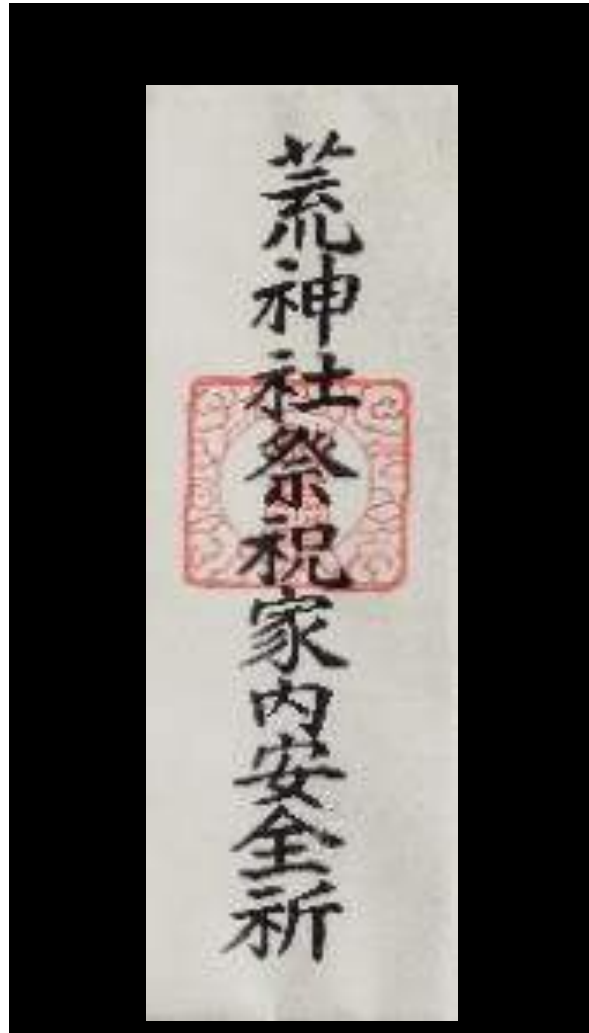 荒神社祭祝家内安全祈